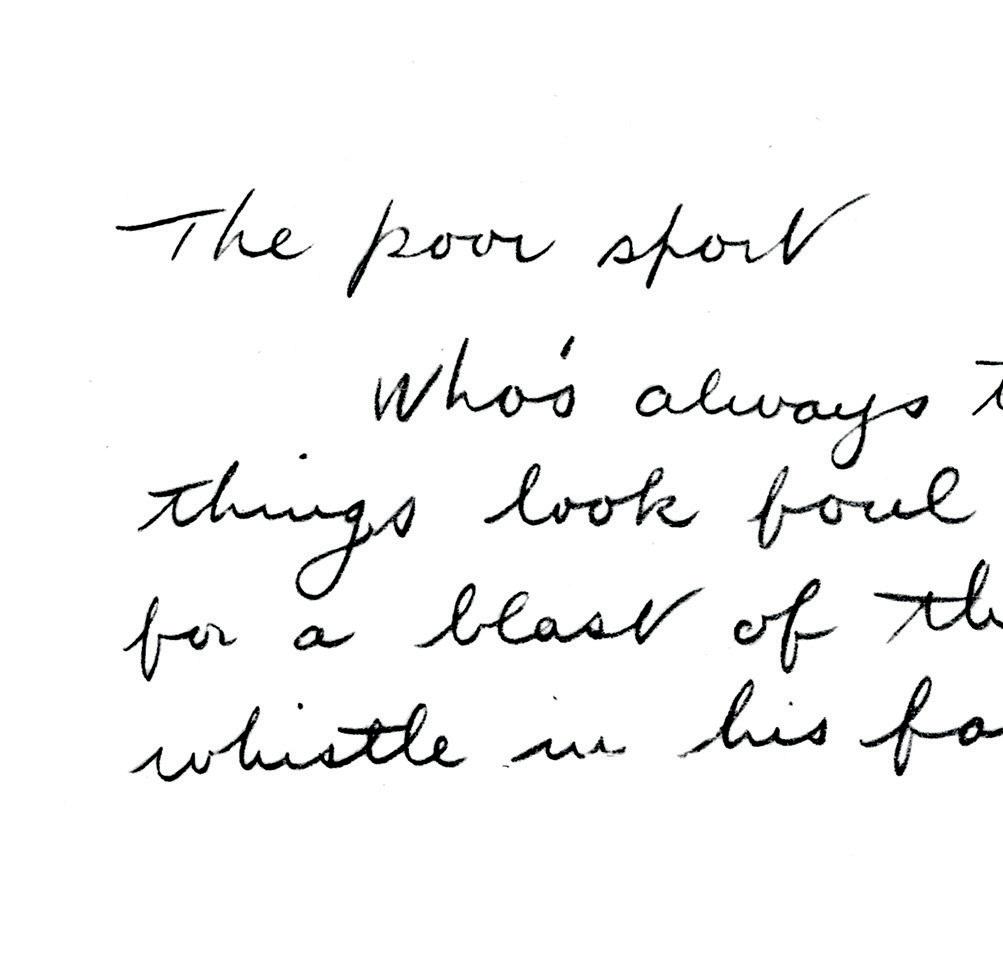 The poor sport
Who's always t
things look foul
for a blast of th
whistle in his fa